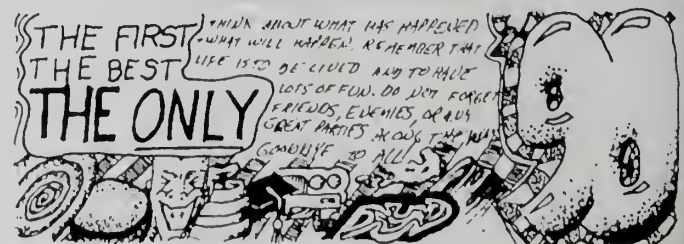 THE FIRST
THE BEST
THE ONLY
THINK ABOUT WHAT HAS HAPPENED
WHAT WILL HAPPEN. REMEMBER THAT
LIFE IS TO BE LIVED AND TO HAVE
LOTS OF FUN. DO NOT FORGET
FRIENDS, ENEMIES, OR ANY
GREAT PARTIES ALONG THE WAY
GOODBYE TO ALL!
80